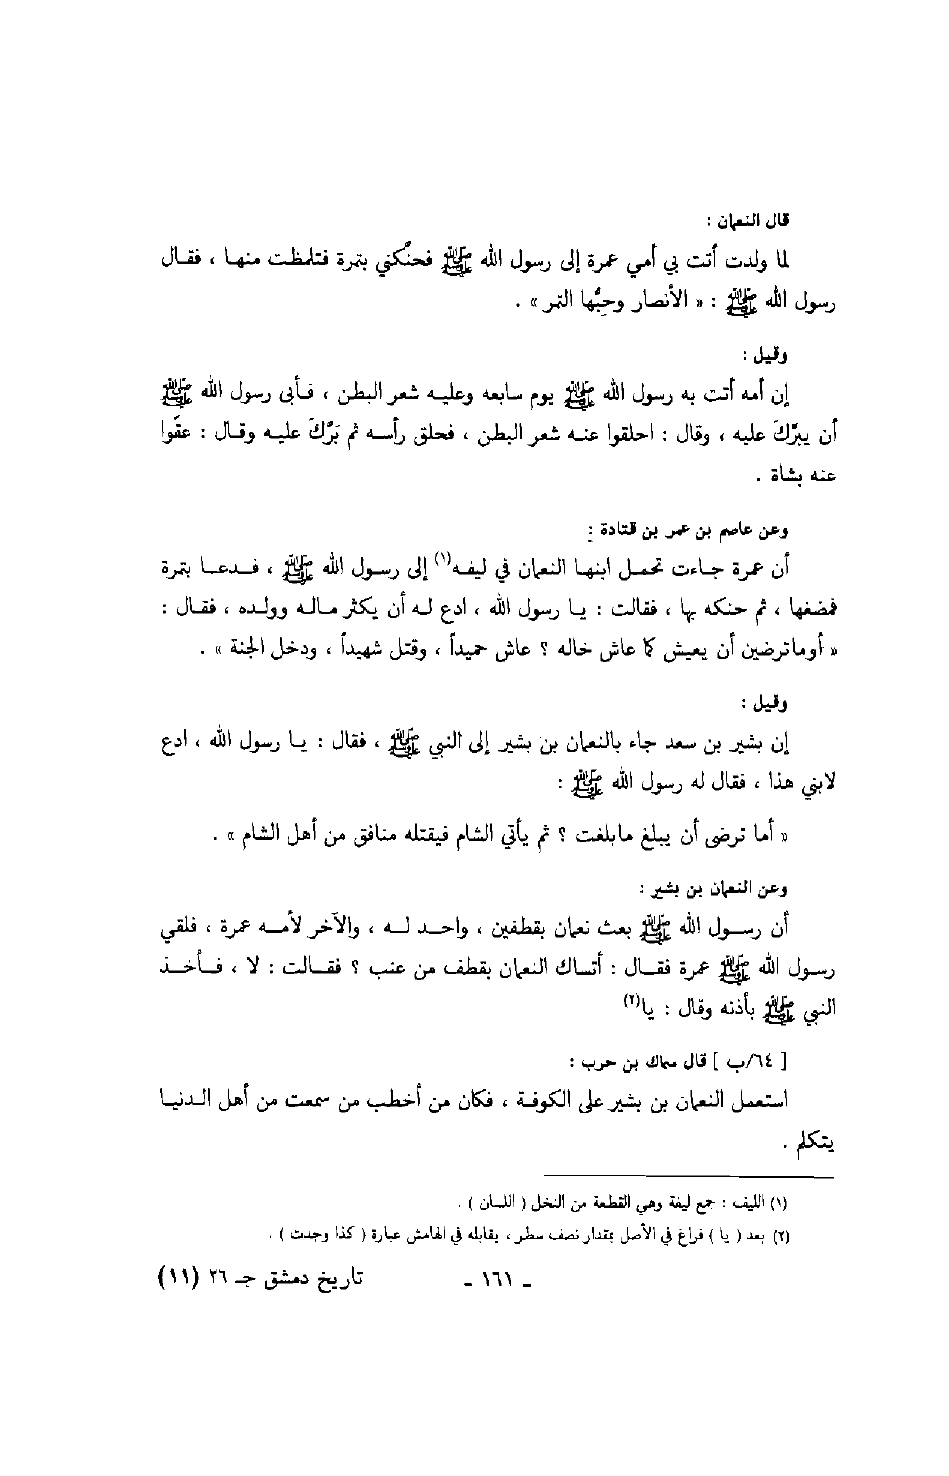 قال النعمان :
لما ولدت أتت بي أمي عمرة إلى رسول الله ﷺ فحنّكني بتمرة فتلمظت منها ، فقال
رسول الله ﷺ : « الأنصار وحبُّها التمر » .
وقيل :
إن أمه أتت به رسول الله ﷺ يوم سابعه وعليه شعر البطن ، فأبى رسول الله ﷺ
أن يبرّكَ عليه ، وقال : احلقوا عنه شعر البطن ، فحلق رأسه ثم بَرَّكَ عليه وقال : عقّوا
عنه بشاة .
وعن عاصم بن عمر بن قتادة :
أن عمرة جاءت تحمل ابنها النعمان في ليفه(١) إلى رسول الله ﷺ ، فدعا بتمرة
فمضغها ، ثم حنكه بها ، فقالت : يا رسول الله ، ادع له أن يكثر ماله وولده ، فقال :
« أوماترضين أن يعيش كما عاش خاله ؟ عاش حميداً ، وقتل شهيداً ، ودخل الجنة » .
وقيل :
إن بشير بن سعد جاء بالنعمان بن بشير إلى النبي ﷺ ، فقال : يا رسول الله ، ادع
لابني هذا ، فقال له رسول الله ﷺ :
« أما ترضى أن يبلغ مابلغت ؟ ثم يأتي الشام فيقتله منافق من أهل الشام » .
وعن النعمان بن بشير :
أن رسول الله ﷺ بعث نعمان بقطفين ، واحد له ، والآخر لأمه عمرة ، فلقي
رسول الله ﷺ عمرة فقال : أتساك النعمان بقطف من عنب ؟ فقالت : لا ، فأخذ
النبي ﷺ بأذنه وقال : يا(٢)
[ ٦٤/ب ] قال سماك بن حرب :
استعمل النعمان بن بشير على الكوفة ، فكان من أخطب من سمعت من أهل الدنيا
يتكلم .
(١) الليف : جمع ليفة وهي القطعة من النخل ( اللسان ) .
(٢) بعد ( يا ) فراغ في الأصل بمقدار نصف سطر ، يقابله في الهامش عبارة ( كذا وجدت ) .
- ١٦١ - تاريخ دمشق جـ ٢٦ (١١)